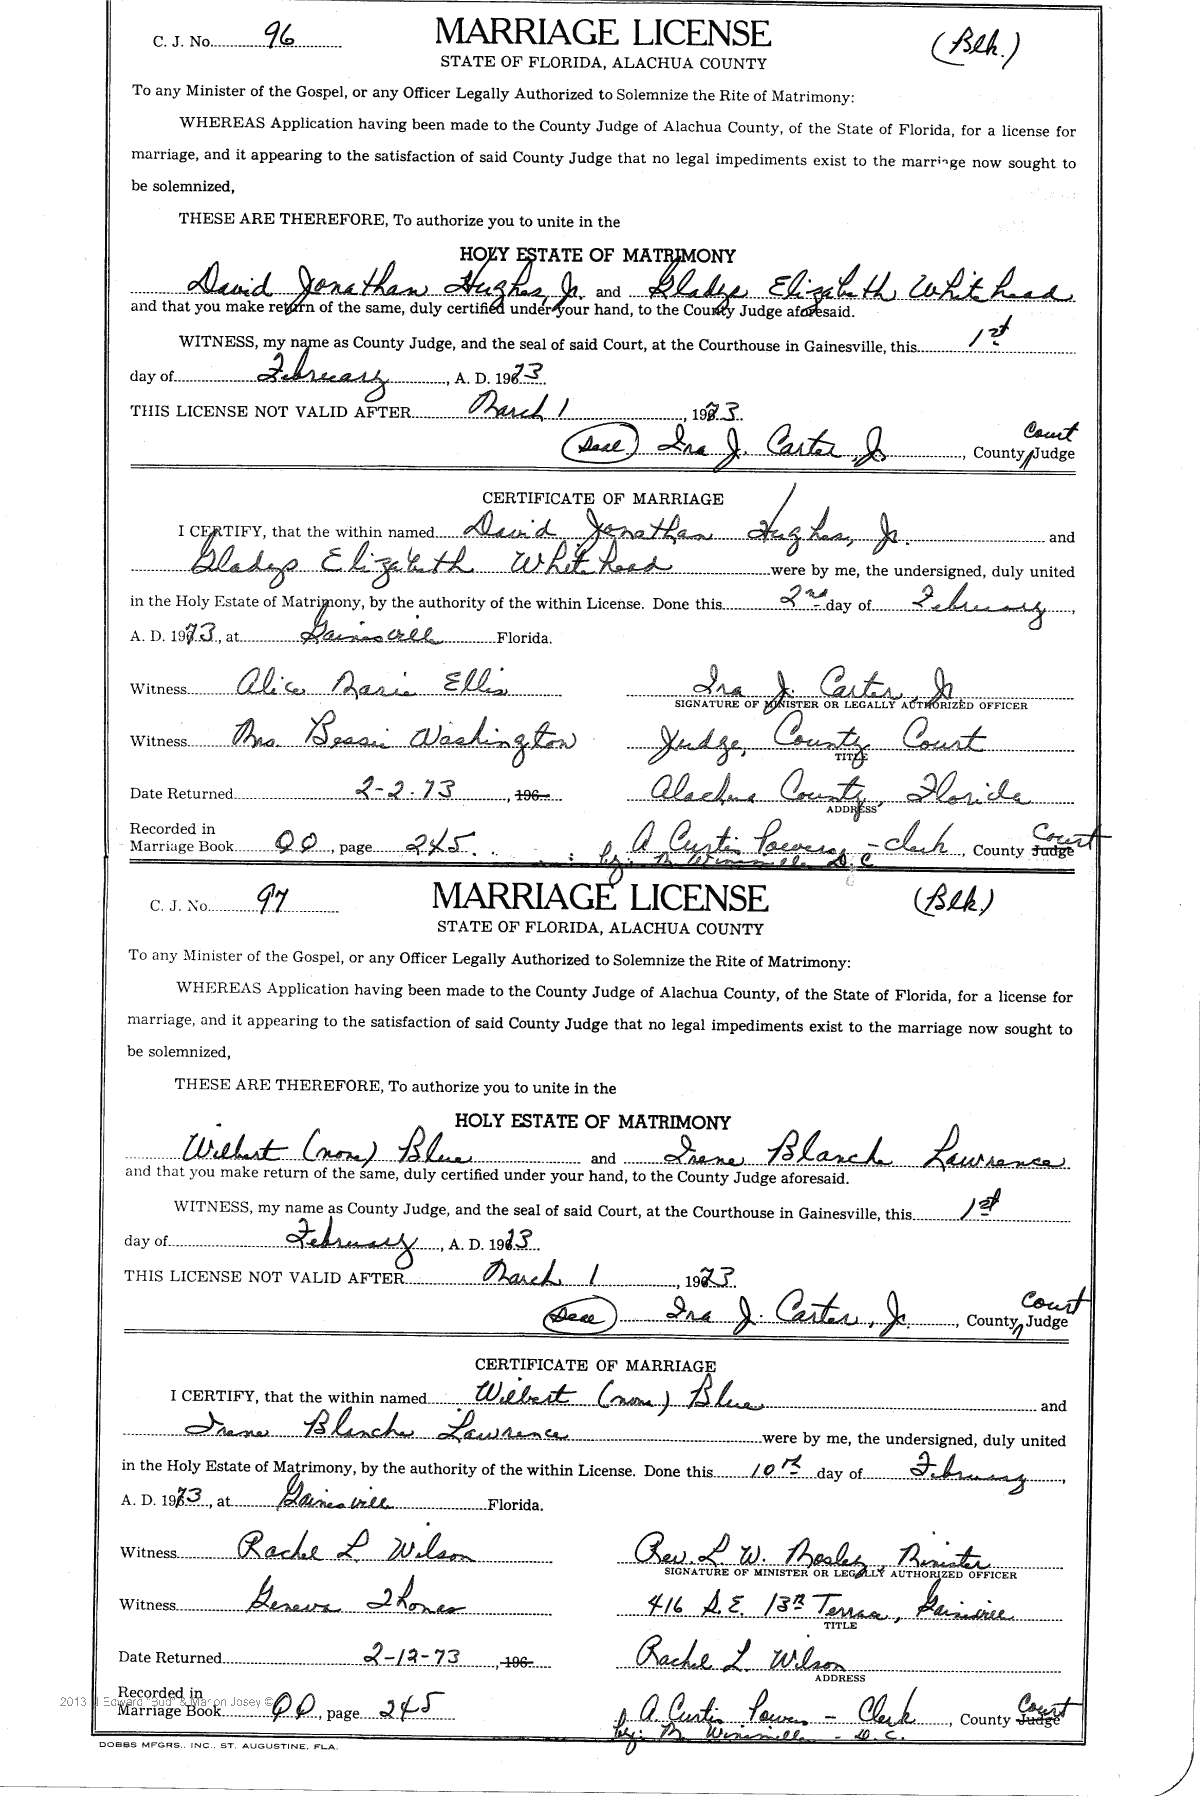 C. J. No. 96 MARRIAGE LICENSE (Blk.)
STATE OF FLORIDA, ALACHUA COUNTY
To any Minister of the Gospel, or any Officer Legally Authorized to Solemnize the Rite of Matrimony:
WHEREAS Application having been made to the County Judge of Alachua County, of the State of Florida, for a license for
marriage, and it appearing to the satisfaction of said County Judge that no legal impediments exist to the marriage now sought to
be solemnized,
THESE ARE THEREFORE, To authorize you to unite in the
HOLY ESTATE OF MATRIMONY
David Jonathan Hughes, Jr. and Gladys Elizabeth Whitehead
and that you make return of the same, duly certified under your hand, to the County Judge aforesaid.
WITNESS, my name as County Judge, and the seal of said Court, at the Courthouse in Gainesville, this 1st
day of February, A. D. 1973
THIS LICENSE NOT VALID AFTER March 1, 1973
(Seal) Ira J. Carter, Jr., County Court Judge
CERTIFICATE OF MARRIAGE
I CERTIFY, that the within named David Jonathan Hughes, Jr. and
Gladys Elizabeth Whitehead were by me, the undersigned, duly united
in the Holy Estate of Matrimony, by the authority of the within License. Done this 2nd day of February,
A. D. 1973, at Gainesville Florida.
Witness Alice Marie Ellis Ira J. Carter, Jr
SIGNATURE OF MINISTER OR LEGALLY AUTHORIZED OFFICER
Witness Mrs Bessie Washington Judge, County Court
TITLE
Date Returned 2-2-73, 196 Alachua County, Florida
ADDRESS
Recorded in
Marriage Book QQ, page 245. A Curtis Powers - Clerk, County Judge Court
by: M. D. C
C. J. No. 97 MARRIAGE LICENSE (Blk.)
STATE OF FLORIDA, ALACHUA COUNTY
To any Minister of the Gospel, or any Officer Legally Authorized to Solemnize the Rite of Matrimony:
WHEREAS Application having been made to the County Judge of Alachua County, of the State of Florida, for a license for
marriage, and it appearing to the satisfaction of said County Judge that no legal impediments exist to the marriage now sought to
be solemnized,
THESE ARE THEREFORE, To authorize you to unite in the
HOLY ESTATE OF MATRIMONY
Wilbert (none) Blue and Irene Blanche Lawrence
and that you make return of the same, duly certified under your hand, to the County Judge aforesaid.
WITNESS, my name as County Judge, and the seal of said Court, at the Courthouse in Gainesville, this 1st
day of February, A. D. 1973
THIS LICENSE NOT VALID AFTER March 1, 1973
(Seal) Ira J. Carter, Jr., County Court Judge
CERTIFICATE OF MARRIAGE
I CERTIFY, that the within named Wilbert (none) Blue and
Irene Blanche Lawrence were by me, the undersigned, duly united
in the Holy Estate of Matrimony, by the authority of the within License. Done this 10th day of February,
A. D. 1973, at Gainesville Florida.
Witness Rachel L. Wilson Rev. L. W. Mosley, Minister
SIGNATURE OF MINISTER OR LEGALLY AUTHORIZED OFFICER
Witness Geneva Thomas 416 S.E. 13th Terrace, Gainesville
TITLE
Date Returned 2-12-73, 196 Rachel L. Wilson
ADDRESS
Recorded in
Marriage Book QQ, page 245 A Curtis Powers - Clerk, County Judge Court
by: M. D. C.
2013 Edward "Bud" & Marion Josey ©
DOBBS MFGRS., INC., ST. AUGUSTINE, FLA.